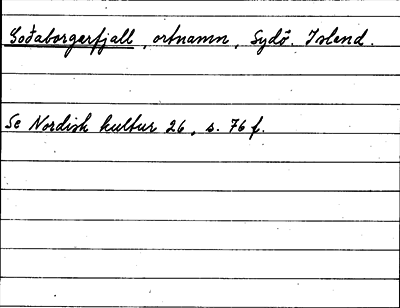 Goðaborgerfjall, ortnamn, Sydö. Island.
Se Nordisk kultur 26, s. 76 f.